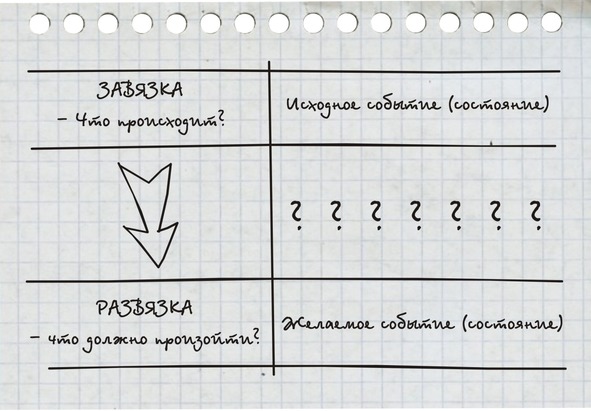 ЗАВЯЗКА
- Что происходит?
Исходное событие (состояние)
? ? ? ? ? ? ?
РАЗВЯЗКА
- что должно произойти?
Желаемое событие (состояние)